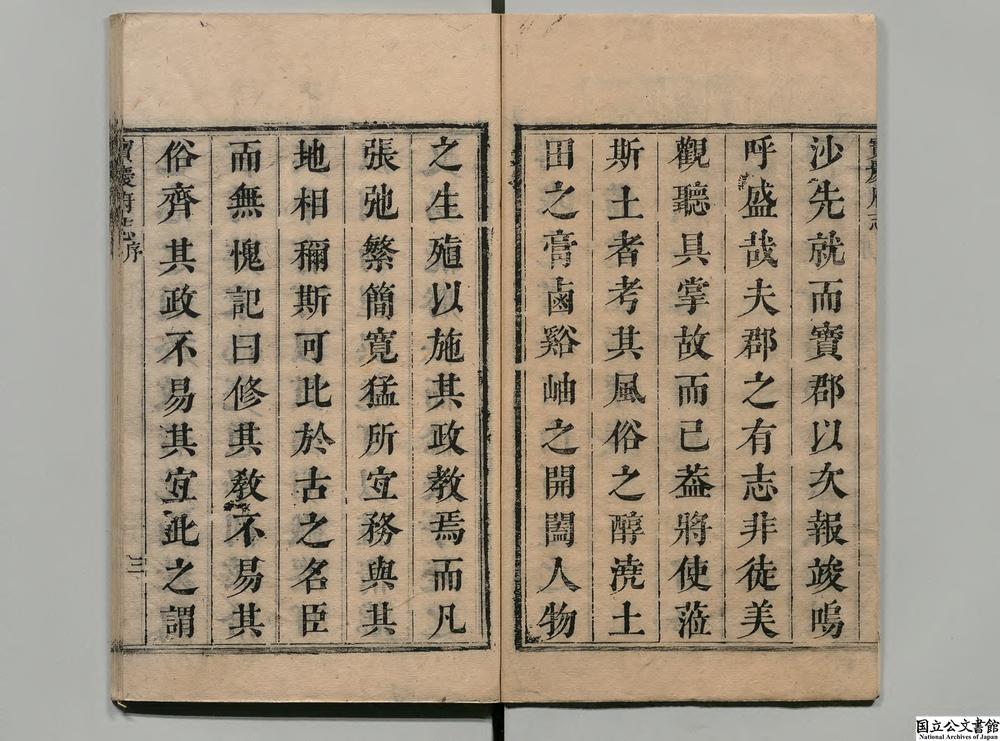 沙先就而寶郡以次報竣嗚
呼盛哉夫郡之有志非徒美
觀聽具掌故而已葢將使蒞
斯土者考其風俗之醇澆土
田之膏鹵谿岫之開闔人物
之生殖以施其政教焉而凡
張弛繁簡寬猛所宜務與其
地相稱斯可比於古之名臣
而無愧記曰修其敎不易其
俗齊其政不易其宜此之謂
寶慶府志序
三
国立公文書館
National Archives of Japan